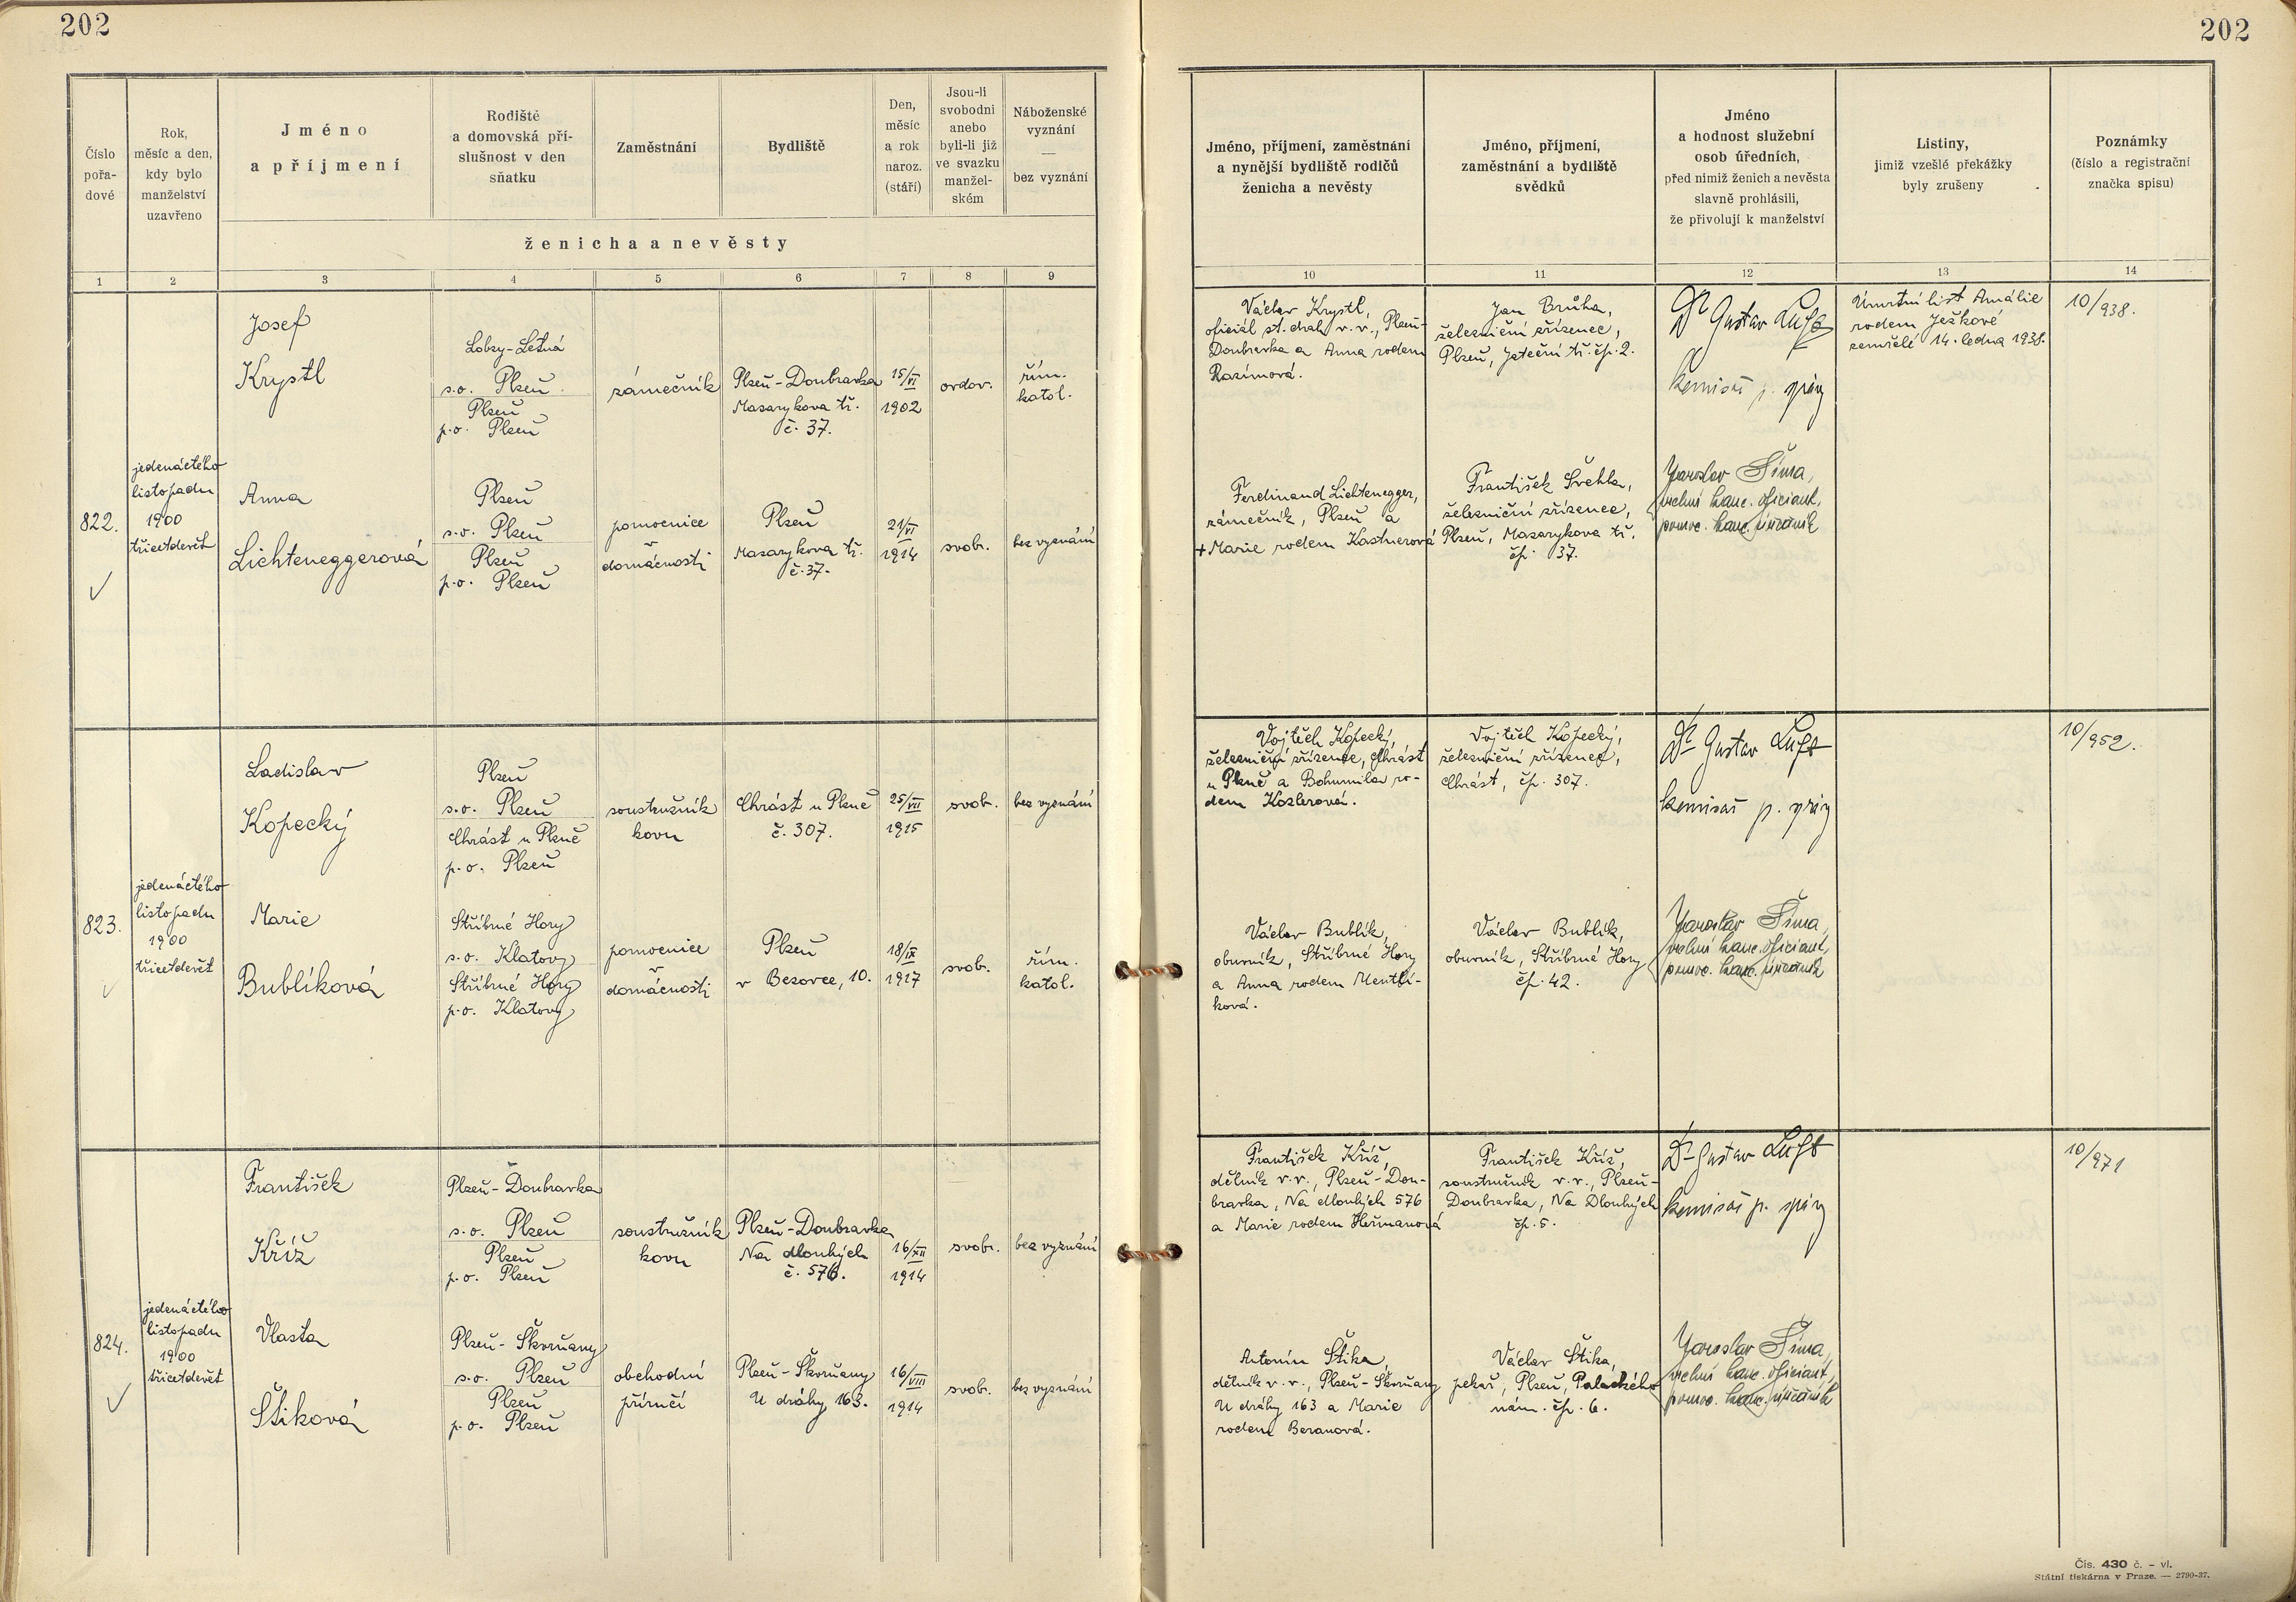 202
202
Číslo
pořa-
dové
Rok,
měsíc a den,
kdy bylo
manželství
uzavřeno
Jméno
a příjmení
Rodiště
a domovská pří-
slušnost v den
sňatku
Zaměstnání
Bydliště
Den,
měsíc
a rok
naroz.
(stáří)
Jsou-li
svobodni
anebo
byli-li již
ve svazku
manžel-
ském
Náboženské
vyznání
—
bez vyznání
ženicha a nevěsty
Jméno, příjmení, zaměstnání
a nynější bydliště rodičů
ženicha a nevěsty
Jméno, příjmení,
zaměstnání a bydliště
svědků
Jméno
a hodnost služební
osob úředních,
před nimiž ženich a nevěsta
slavně prohlásili,
že přivolují k manželství
Listiny,
jimiž vzešlé překážky
byly zrušeny
Poznámky
(číslo a registrační
značka spisu)
1 2 3 4 5 6 7 8 9 10 11 12 13 14
822.
jedenáctého
listopadu
1900
třicetdevět
Josef
Krystl
Lobzy-Letná
s.o. Plzeň
Plzeň
p.o. Plzeň
zámečník
Plzeň-Doubravka
Masarykova tř.
č. 37.
15/VI
1902
ovdov.
řím.
katol.
Anna
Lichteneggerová
Plzeň
s.o. Plzeň
Plzeň
p.o. Plzeň
pomocnice
v
domácnosti
Plzeň
Masarykova tř.
č. 37.
21/VI
1914
svob.
bez vyznání
Václav Krystl,
oficiál st. drah v.v., Plzeň-
Doubravka a Anna rodem
Razímová.
Ferdinand Lichtenegger,
zámečník, Plzeň a
+ Marie rodem Kastnerová
Jan Brůha,
železniční zřízenec,
Plzeň, Jateční tř. čp. 2.
František Švehla,
železniční zřízenec,
Plzeň, Masarykova tř.
čp. 37.
Dr Gustav Luft
komisař p. správy
Jaroslav Šíma,
vrchní kanc. oficiant,
pomoc. kanc. úředník
Úmrtní list Amálie
rodem Ježkové
zemřelé 14. ledna 1938.
10/938.
823.
jedenáctého
listopadu
1900
třicetdevět
Ladislav
Kopecký
Plzeň
s.o. Plzeň
Chrást u Plzně
p.o. Plzeň
soustružník
kovu
Chrást u Plzně
č. 307.
25/VII
1915
svob.
bez vyznání
Marie
Bublíková
Stříbrné Hory
s.o. Klatovy
Stříbrné Hory
p.o. Klatovy
pomocnice
v
domácnosti
Plzeň
v Bezovce, 10.
18/IX
1917
svob.
řím.
katol.
Vojtěch Kopecký,
železniční zřízenec, Chrást
u Plzně a Bohumila ro-
dem Kozlerová.
Václav Bublík,
obuvník, Stříbrné Hory
a Anna rodem Mentlí-
ková.
Vojtěch Kopecký,
železniční zřízenec,
Chrást, čp. 307.
Václav Bublík,
obuvník, Stříbrné Hory
čp. 42.
Dr Gustav Luft
komisař p. správy
Jaroslav Šíma,
vrchní kanc. oficiant,
pomoc. kanc. úředník
10/952.
824.
jedenáctého
listopadu
1900
třicetdevět
František
Kříž
Plzeň-Doubravka
s.o. Plzeň
Plzeň
p.o. Plzeň
soustružník
kovu
Plzeň-Doubravka
Na dlouhých
č. 576.
16/XII
1914
svob.
bez vyznání
Vlasta
Štiková
Plzeň-Škvrňany
s.o. Plzeň
Plzeň
p.o. Plzeň
obchodní
příručí
Plzeň-Škvrňany
U dráhy 163.
16/VIII
1914
svob.
bez vyznání
František Kříž,
dělník v.v., Plzeň-Dou-
bravka, Na dlouhých 576
a Marie rodem Heřmanová
Antonín Štika,
dělník v.v., Plzeň-Škvrňany
U dráhy 163 a Marie
rodem Beranová.
František Kříž,
soustružník v.v., Plzeň-
Doubravka, Na Dlouhých
čp. 5.
Václav Štika,
pekař, Plzeň, Palackého
nám. čp. 6.
Dr Gustav Luft
komisař p. správy
Jaroslav Šíma,
vrchní kanc. oficiant,
pomoc. kanc. úředník
10/971
Čís. 430 č. - vl.
Státní tiskárna v Praze. — 2790-37.